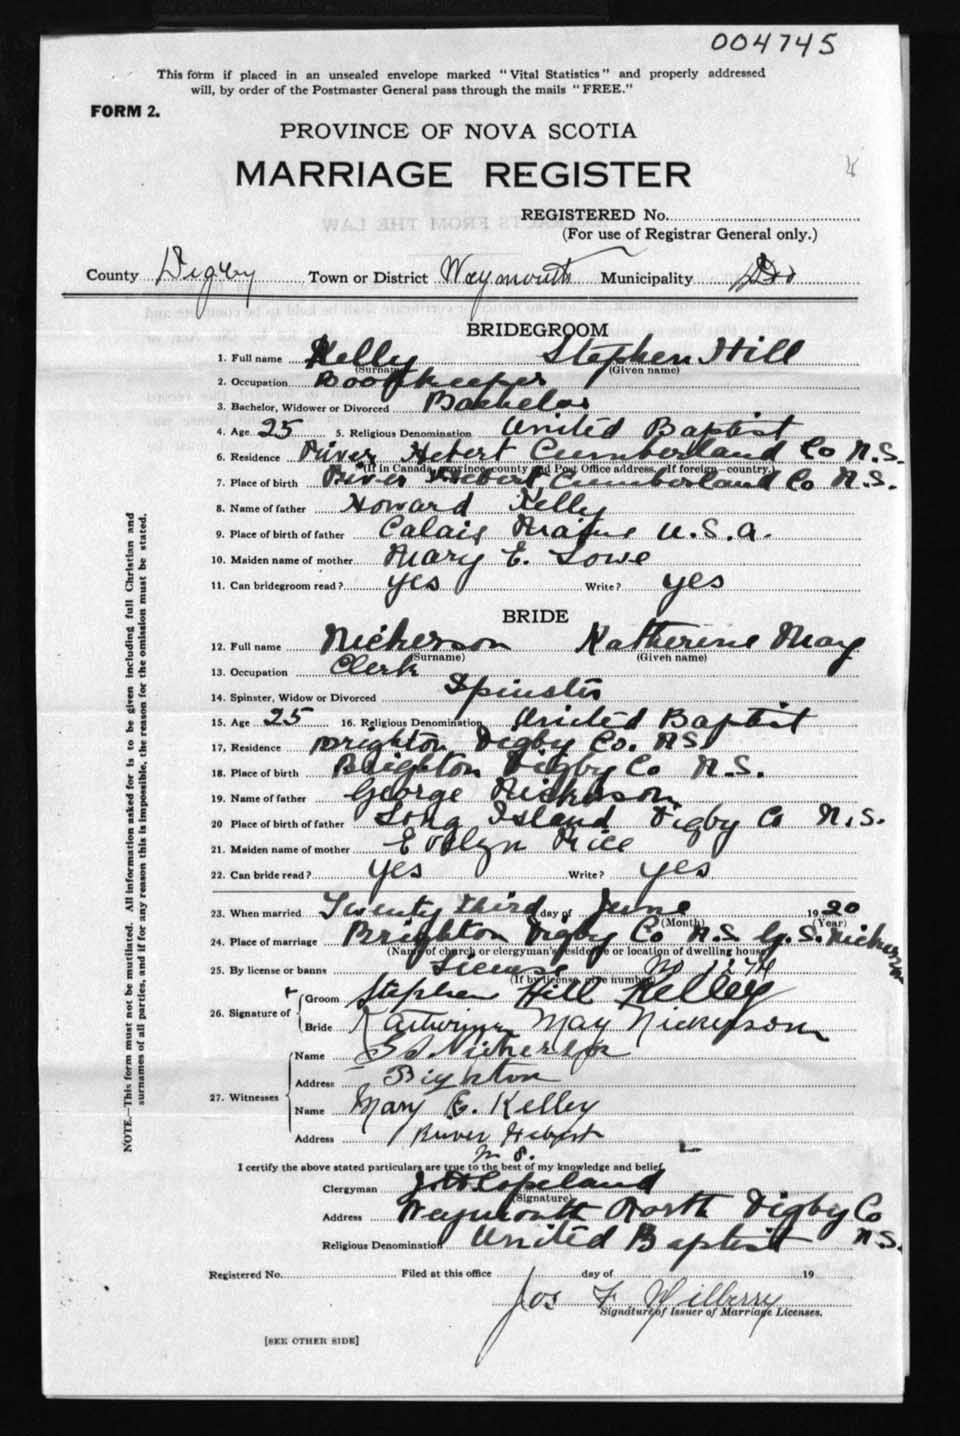 004745
This form if placed in an unsealed envelope marked "Vital Statistics" and properly addressed
will, by order of the Postmaster General pass through the mails "FREE."
FORM 2.
PROVINCE OF NOVA SCOTIA
MARRIAGE REGISTER
REGISTERED No.
(For use of Registrar General only.)
County Digby Town or District Weymouth Municipality Do
BRIDEGROOM
1. Full name Kelly Stephen Hill
(Surname) (Given name)
2. Occupation Bookkeeper
3. Bachelor, Widower or Divorced Bachelor
4. Age 25 5. Religious Denomination United Baptist
6. Residence River Hebert Cumberland Co N.S.
(If in Canada, province, county and Post Office address. If foreign—country.)
7. Place of birth River Hebert Cumberland Co N.S.
8. Name of father Howard Kelly
9. Place of birth of father Calais Maine U.S.A.
10. Maiden name of mother Mary E. Lowe
11. Can bridegroom read? yes Write? yes
BRIDE
12. Full name Nickerson Katherine May
(Surname) (Given name)
13. Occupation Clerk
14. Spinster, Widow or Divorced Spinster
15. Age 25 16. Religious Denomination United Baptist
17, Residence Brighton Digby Co. NS
18. Place of birth Brighton Digby Co N.S.
19. Name of father George Nickerson
20 Place of birth of father Long Island Digby Co N.S.
21. Maiden name of mother Evelyn Rice
22. Can bride read? yes Write? yes
23. When married Twenty third day of June 1920
(Month) (Year)
24. Place of marriage Brighton Digby Co N.S G.S. Nickerson
(Name of church or clergyman's residence or location of dwelling house)
25. By license or banns License No
(If by license, give number)
26. Signature of
Groom Stephen Hill Kelley
Bride Katherine May Nickerson
27. Witnesses
Name Nickerson
Address Brighton
Name Mary E. Kelley
Address River Hebert
N S.
I certify the above stated particulars are true to the best of my knowledge and belief.
Clergyman Copeland
(Signature)
Address Weymouth North Digby Co
N.S.
Religious Denomination United Baptist
Registered No. Filed at this office day of 19
Jos F. Wilberry
Signature of Issuer of Marriage Licenses.
[SEE OTHER SIDE]
NOTE.—This form must not be mutilated. All information asked for is to be given including full Christian and
surnames of all parties, and if for any reason this is impossible, the reason for the omission must be stated.